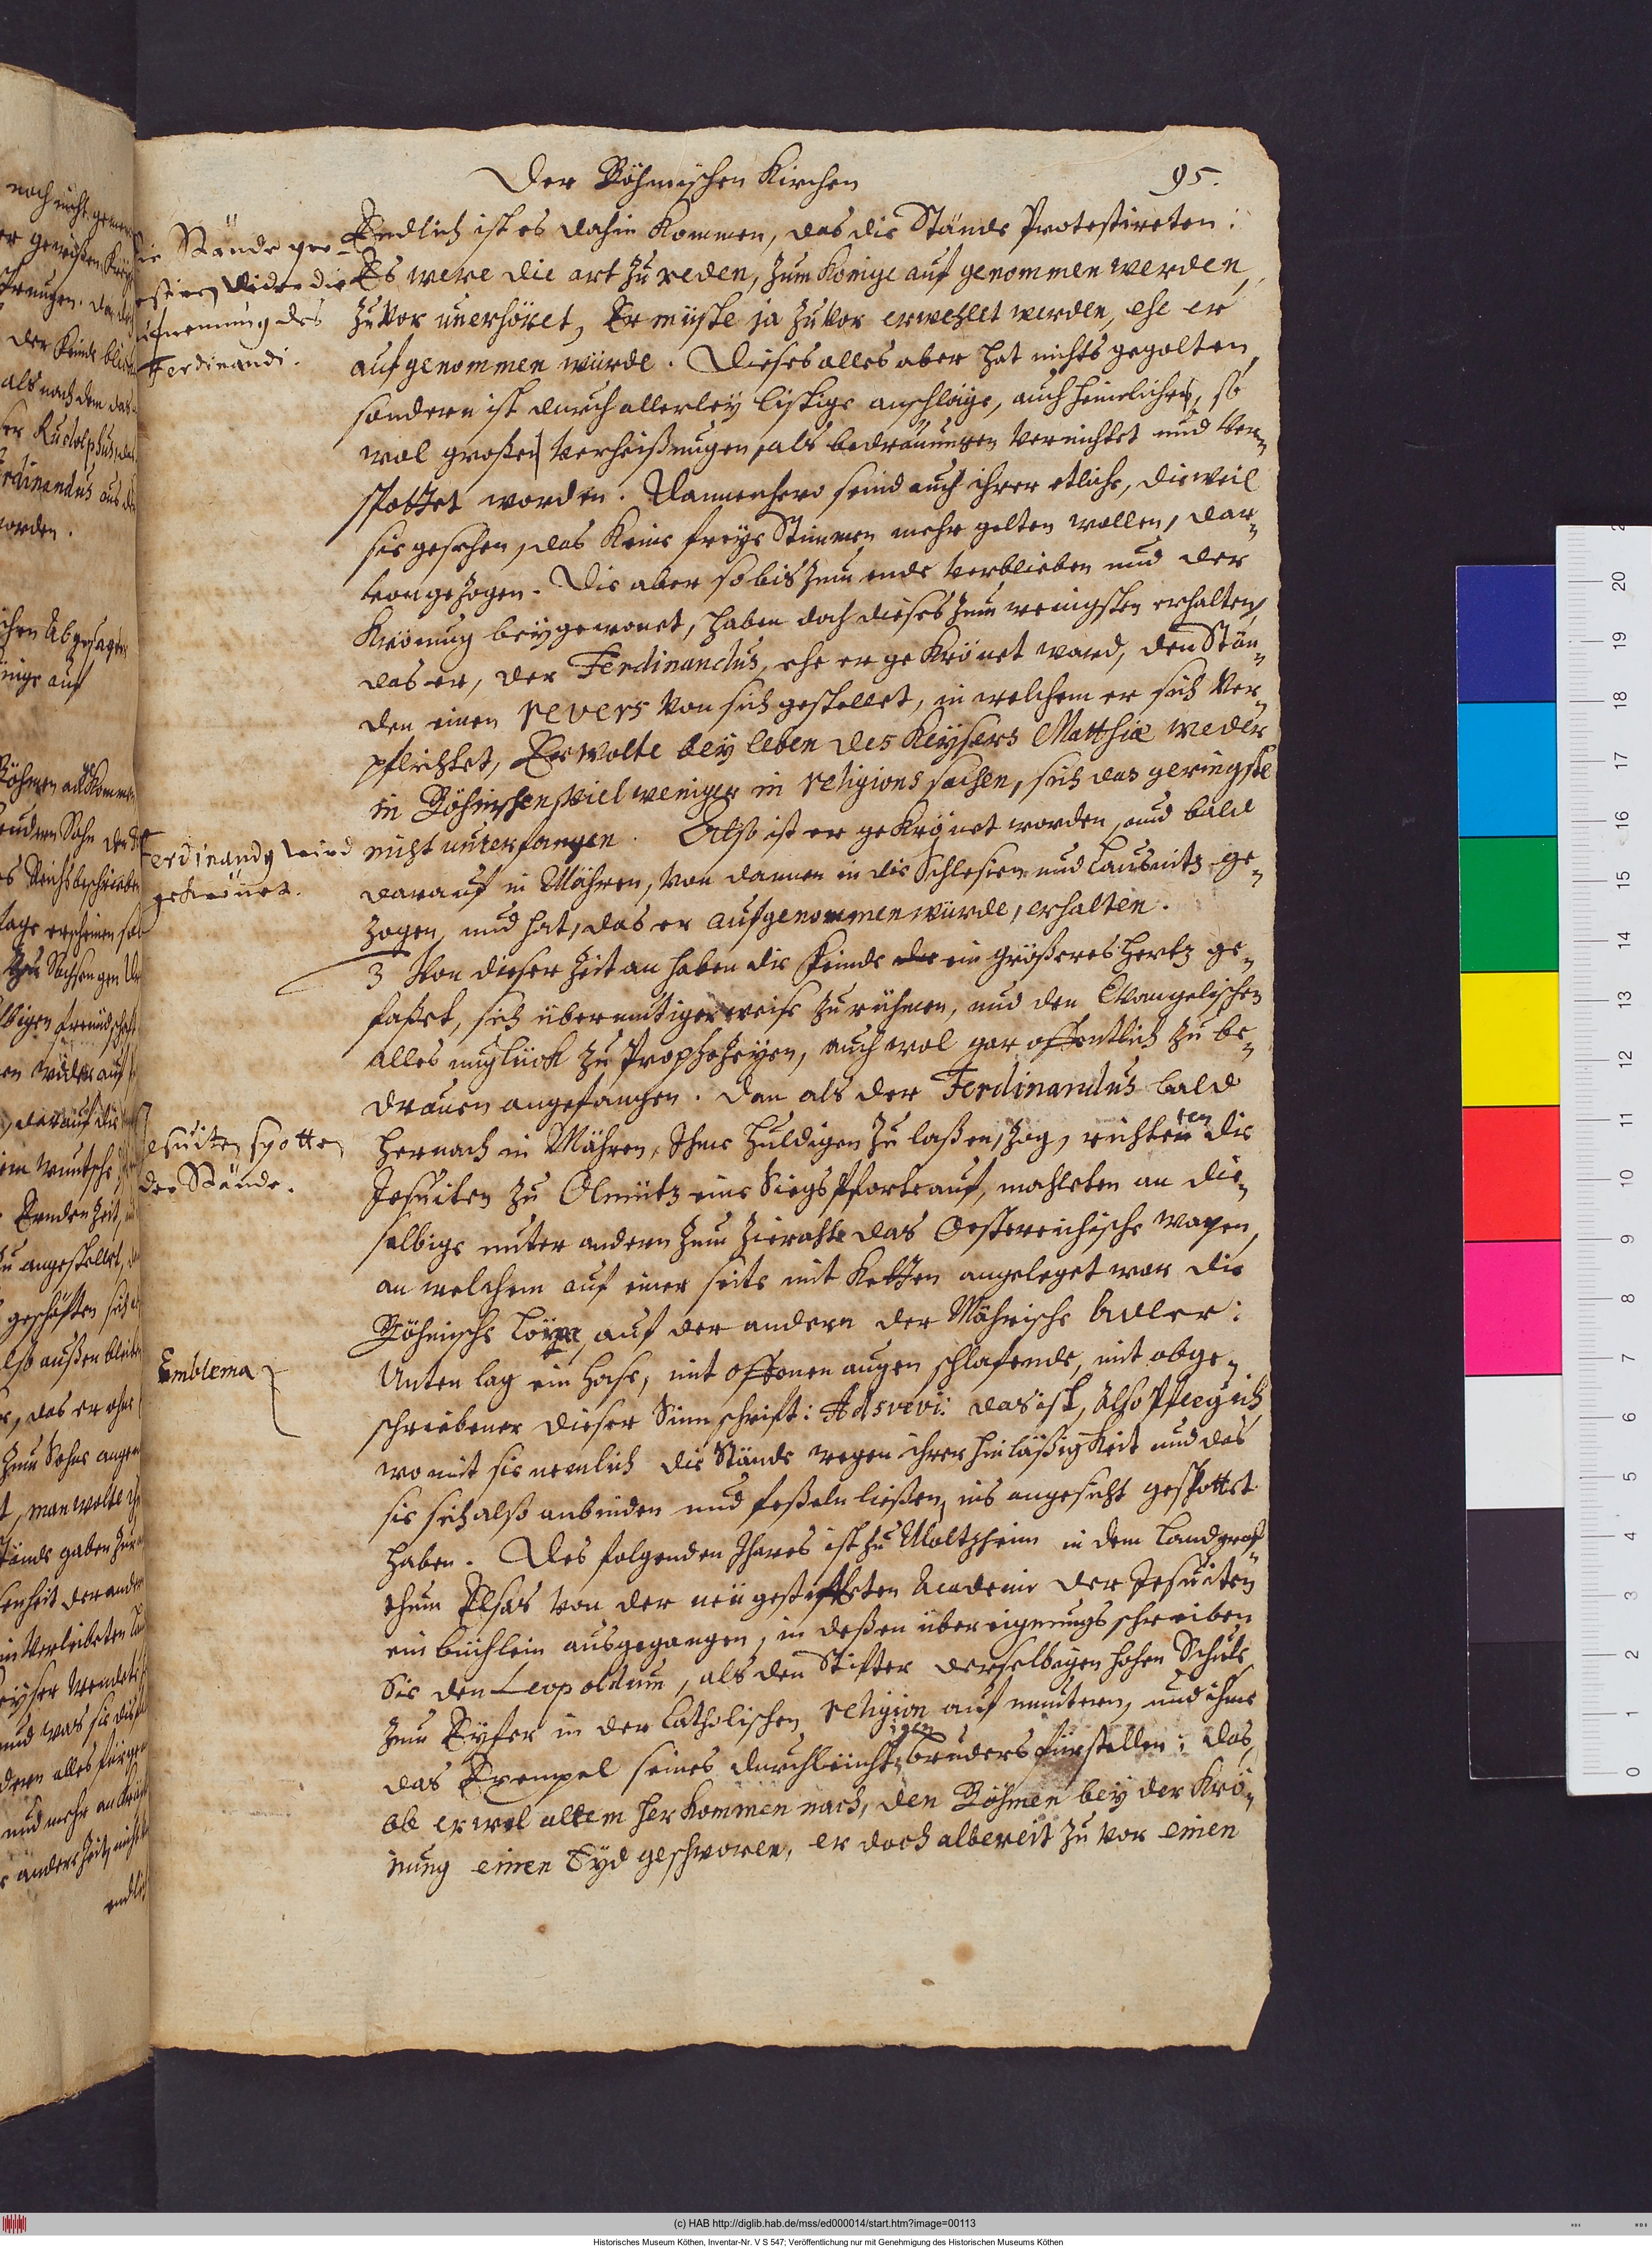 Der Böhmischen Kirchen 95.
Endlich ist es dahin kommen, das die Stände Protestireten:
Es were die art zu reden, zum Könige aufgenommen werden,
zuvor unerhöret, Er müste ja zuvor erwehlet werden, ehe er
aufgenommen würde. Dieses alles aber hat nichts gegolten,
sondern ist durch allerley listige anschläge, auch heimliche, so
wol großen verheißungen, als bedrauungen vernichtet und ver-
spottet worden. Dannenhero seind auch ihrer etliche, dieweil
sie gesehen, das keine freye Stimmen mehr gelten wollen, dar-
von gezogen. Die aber so bis zum ende verblieben und der
Krönung beygewonet, haben doch dieses zum wenigsten erhalten,
das er, der Ferdinandus, ehe er gekrönet ward, den Stän-
den einen revers von sich gestellet, in welchem er sich ver-
pflichtet, Er wolte bey leben des Keysers Matthiæ weder
in Böhmischen, viel weniger in religions sachen, sich das geringste
nicht unterfangen. Also ist er gekrönet worden, und bald
darauf in Mähren, von dannen in die Schlesien und Lausnitz ge-
zogen, und hat, das er aufgenommen würde, erhalten.
3 Von dieser zeit an haben die Feinde die ein größeres hertz ge-
faßet, sich übermütiger weise zu rühmen, und den Evangelischen
alles unglück zu Propheyzeyen, auch wol gar offentlich zu be-
drauen angefangen. Dan als der Ferdinandus bald
hernach in Mähren, Ihme huldigen zu laßen, zog, richteten die
Jesuiten zu Olmütz eine Siegs Pforte auf, mahleten an die-
selbige unter andern zum Zierahte das Oestereichische wapen,
an welchem auf einer seite mit ketten angeleget war die
Böhmische Löwe, auf der andern der Mährische Adler:
Unten lag ein Hase, mit offenen augen schlafende, mit obge-
schriebener dieser Sinnschrift: Adsvevi: das ist, Also Pfleg ich
womit sie nemlich die Stände wegen ihrer hinläßigkeit und das
sie sich also anbinden und feßeln ließen, ins angesicht gespottet
haben. Des folgenden Jhares ist zu Moltzheim in dem Landgraf-
thum Elsas von der neu gestiffteten Academie der Jesuiten
ein büchlein ausgegangen, in deßen übereignungs schreiben
Sie den Leopoldum, als den Stifter derselbigen hohen Schule
zum Eyfer in der Catholischen religion aufmuntern, und ihme
das Exempel seines durchleuchtigen bruders fürstellen: das,
ob er wol altem herkommen nach, den Böhmen bey der Krö-
nung einen Eyd geschworen, er doch albereit zuvor einen
Die Stände pro-
testiren wider die
aufnemung des
Ferdinandi.
Ferdinandus wird
gekrönet.
Jesuiten spotten
der Stände.
Emblema
20
19
18
17
16
15
14
13
12
11
10
9
8
7
6
5
4
3
2
1
0
(c) HAB http://diglib.hab.de/mss/ed000014/start.htm?image=00113
Historisches Museum Köthen, Inventar-Nr. V S 547; Veröffentlichung nur mit Genehmigung des Historischen Museums Köthen